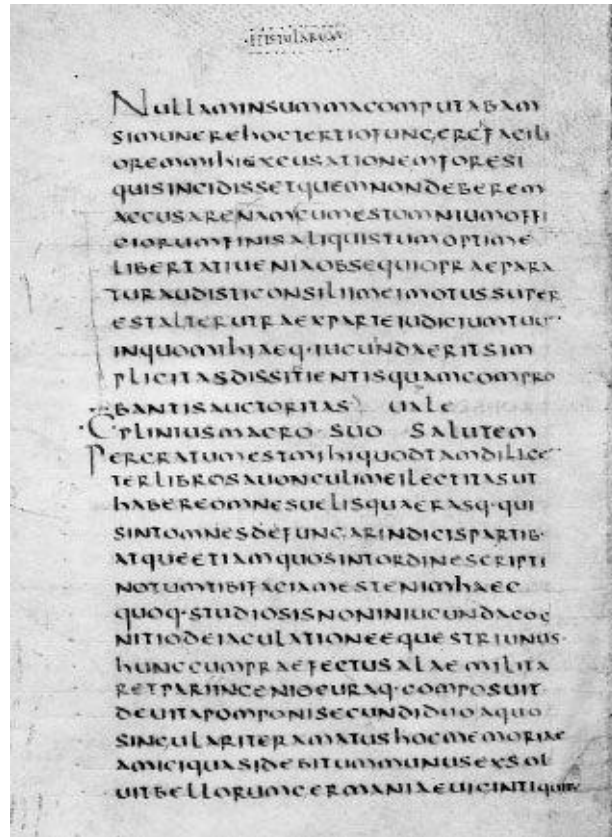 ·EPISTULARUM·
NULLAMINSUMMACOMPUTABAM
SIMUNEREHOCTERTIOFUNGERERFACILI
OREMMIHIEXCUSATIONEMFORESI
QUISINCIDISSETQUEMNONDEBEREM
ACCUSARENAMCUMESTOMNIUMOFFI
CIORUMFINISALIQUISTUMOPTIME
LIBERTATIUENIAOBSEQUIOPRAEPARA
TURAUDISTICONSILIIMEIMOTUSSUPER
ESTALTERUTRAEXPARTEIUDICIUMTUU
INQUOMIHIAEQ·IUCUNDAERITSIM
PLICITASDISSITIENTISQUAMCOMPRO
BANTISAUCTORITAS UALE
·C·PLINIUSMACRO·SUO SALUTEM
PERGRATUMESTMIHIQUODTAMDILIGE
TERLIBROSAUONCULIMEILECTITASUT
HABEREOMNESUELISQUAERASQ·QUI
SINTOMNESDEFUNGARINDICISPARTIB·
ATQUEETIAMQUOSINTORDINESCRIPTI
NOTUMTIBIFACIAMESTENIMHAEC
QUOQ·STUDIOSISNONINIUCUNDACOG
NITIODEIACULATIONEEQUESTRIUNUS·
HUNCCUMPRAEFECTUSALAEMILITA
RETPARIINGENIOCURAQ·COMPOSUIT
DEUITAPOMPONISECUNDIDUOAQUO
SINGULARITERAMATUSHOCMEMORIAE
AMICIQUASIDEBITUMMUNUSEXSOL
UITBELLORUMGERMANIAEUIGINTIQUIB